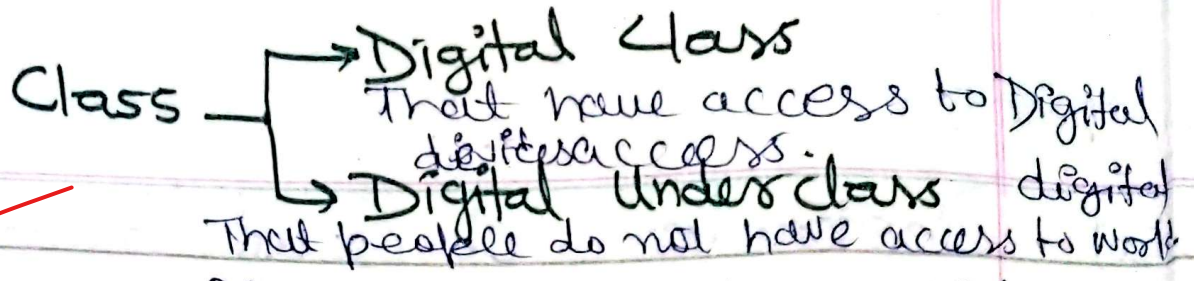 Class
Digital Class
That have access to Digital
devices access.
Digital Underclass digital
That people do not have access to work